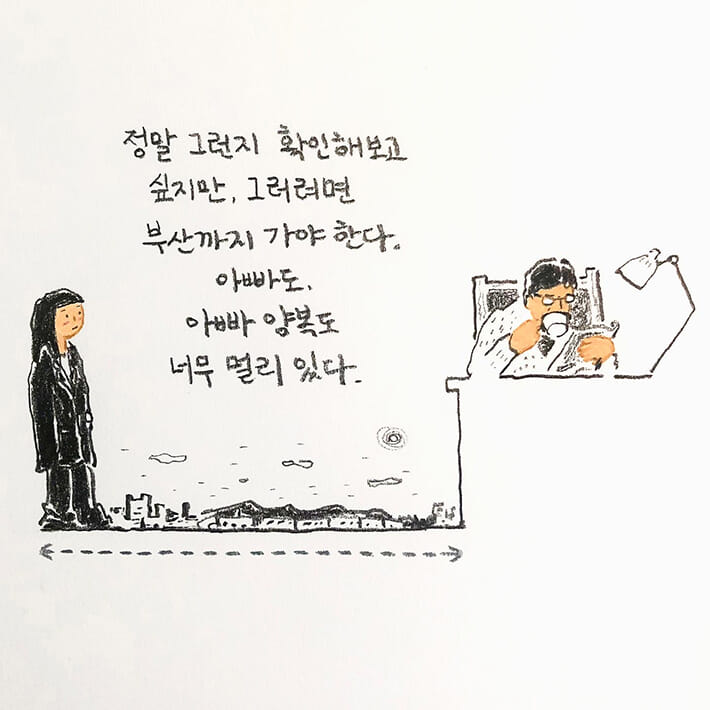 정말 그런지 확인해보고
싶지만, 그러려면
부산까지 가야 한다.
아빠도,
아빠 양복도
너무 멀리 있다.